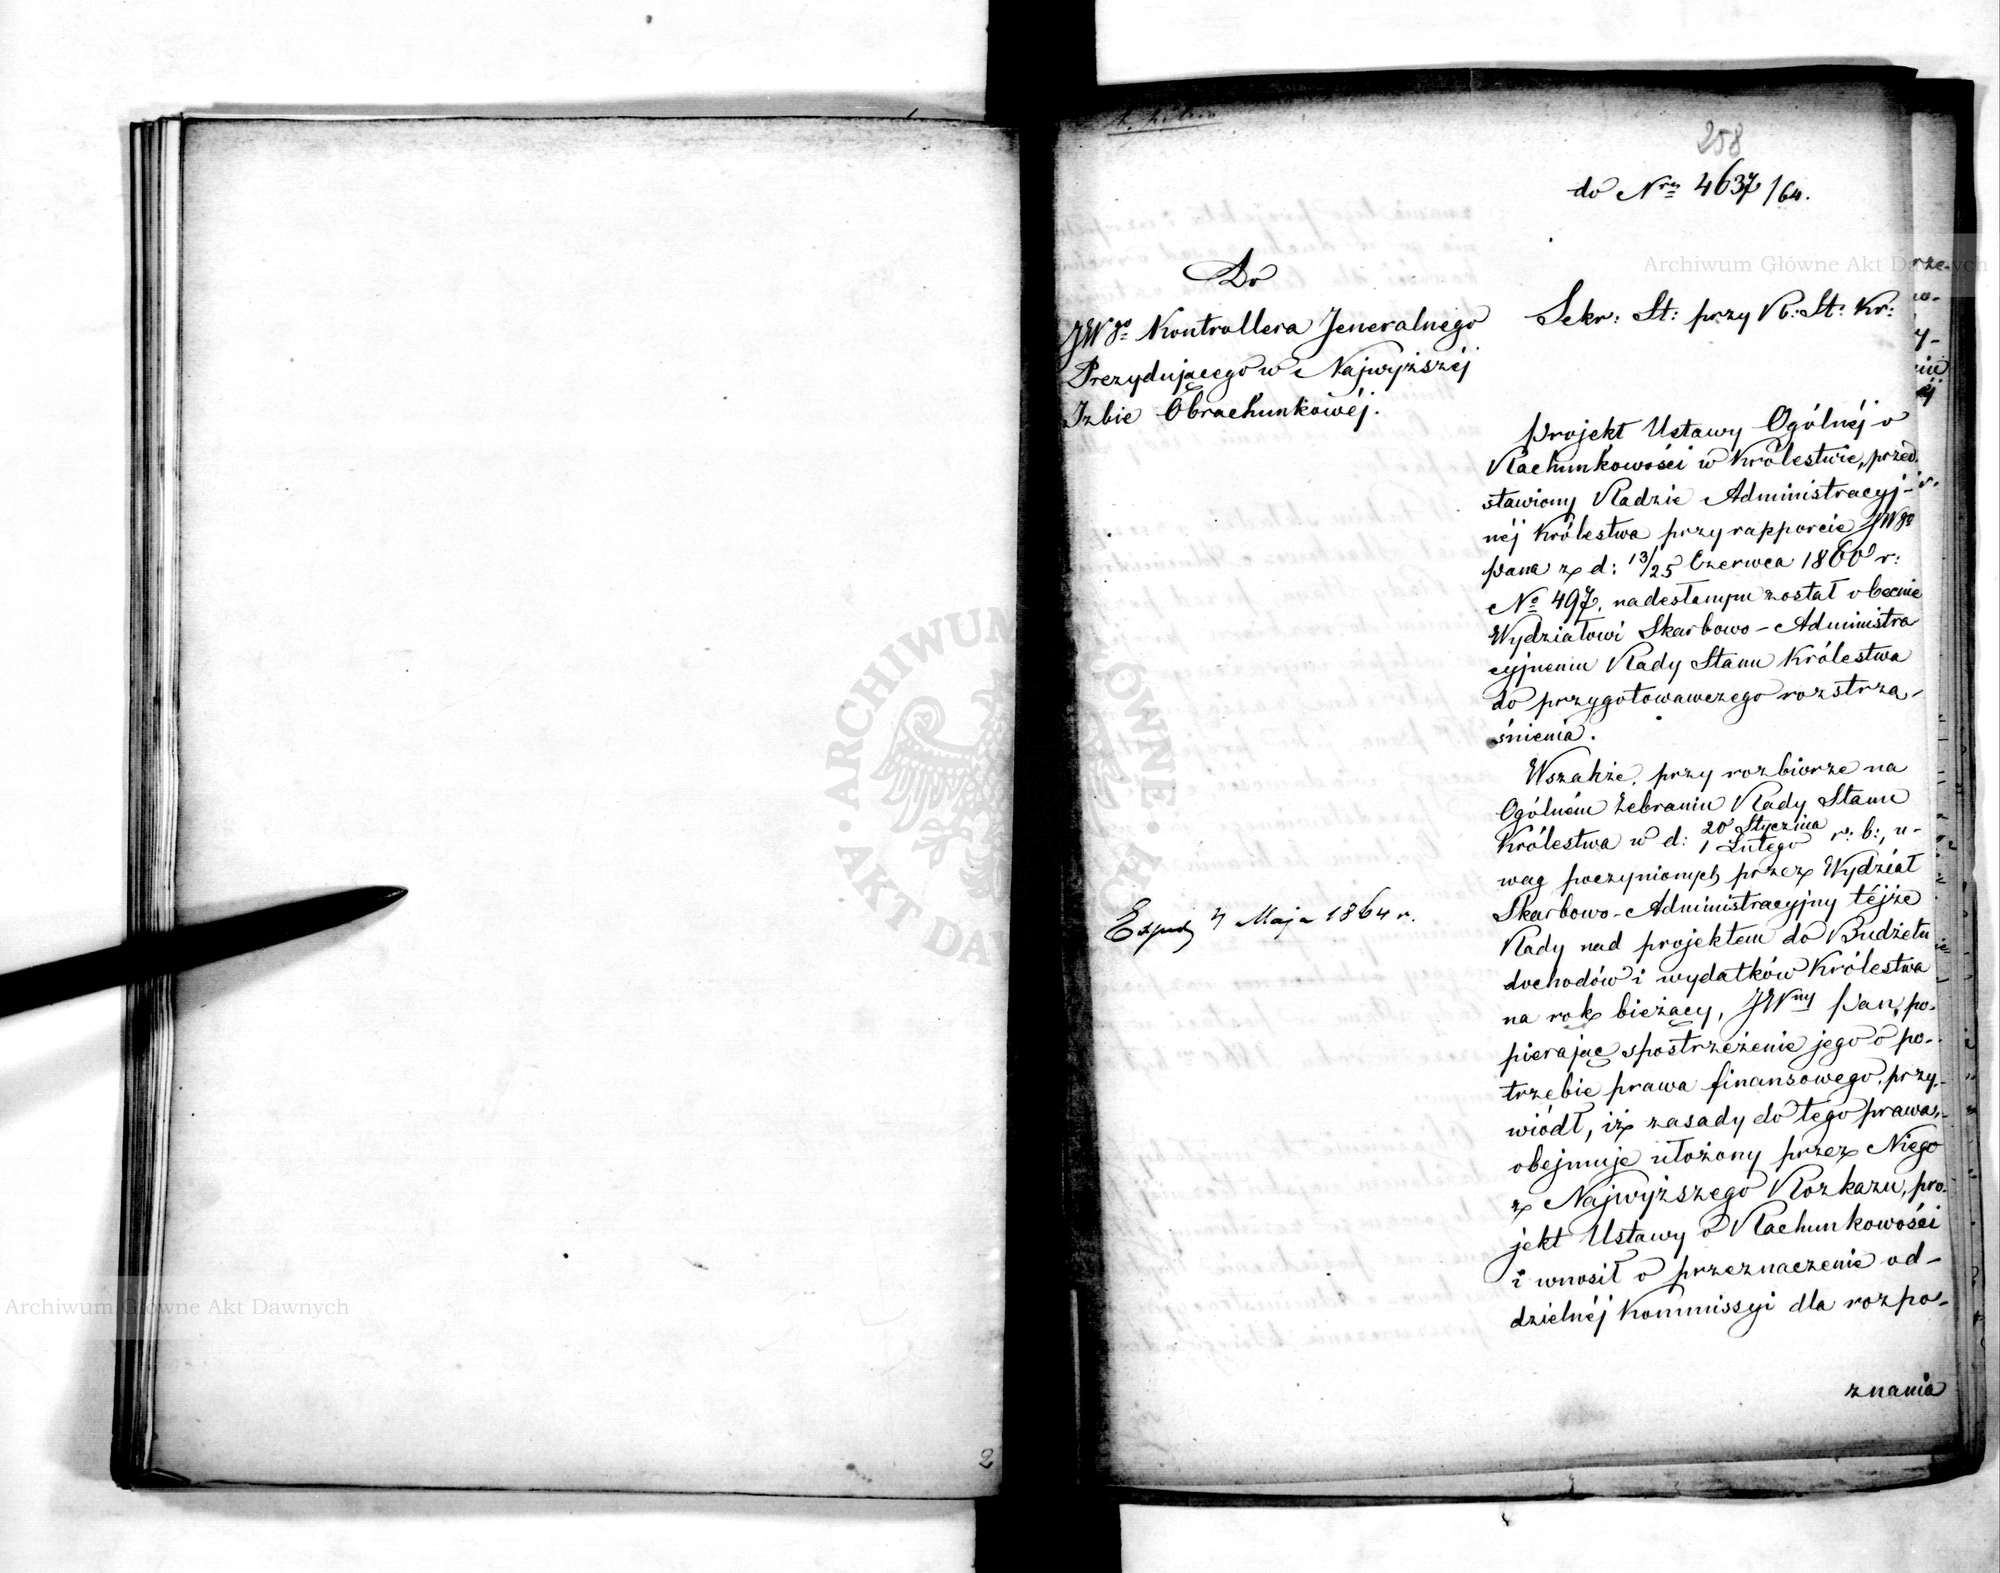 258
do Nru 4637/64.
Do
JWgo Kontrollera Jeneralnego
Prezydującego w Najwyższéj
Izbie Obrachunkowéj.
Sekr: St: przy R: St: Kr:
Projekt Ustawy Ogólnéj o
Rachunkowości w Królestwie, przed
stawiony Radzie Administracyj-
néj Królestwa przy rapporcie JWgo
Pana z d: 13/25 Czerwca 1860 r:
No 497, nadesłanym został obecnie
Wydziałowi Skarbowo-Administra
cyjnemu Rady Stanu Królestwa
do przygotowawczego roztrzą-
śnienia.
Wszakże, przy rozbiorze na
Ogólném Zebraniu Rady Stanu
Królestwa w d: 20 Stycznia / 1 Lutego r: b:, u-
wag poczynionych przez Wydział
Skarbowo-Administracyjny téjże
Rady nad projektem do Budżetu
dochodów i wydatków Królestwa
na rok bieżący, JWny Pan, po-
pierając spostrzeżenie jego o po-
trzebie prawa finansowego, przy-
wiódł, iż zasady do tego prawa,
obejmuje ułożony przez Niego
z Najwyższego Rozkazu, pro-
jekt Ustawy o Rachunkowości
i wnosił o przeznaczenie od-
dzielnéj Kommissyi dla rozpo-
znania
Exped 4 Maja 1864 r.
2
Archiwum Główne Akt Dawnych
Archiwum Główne Akt Dawnych
ARCHIWUM GŁÓWNE
AKT DAWNYCH